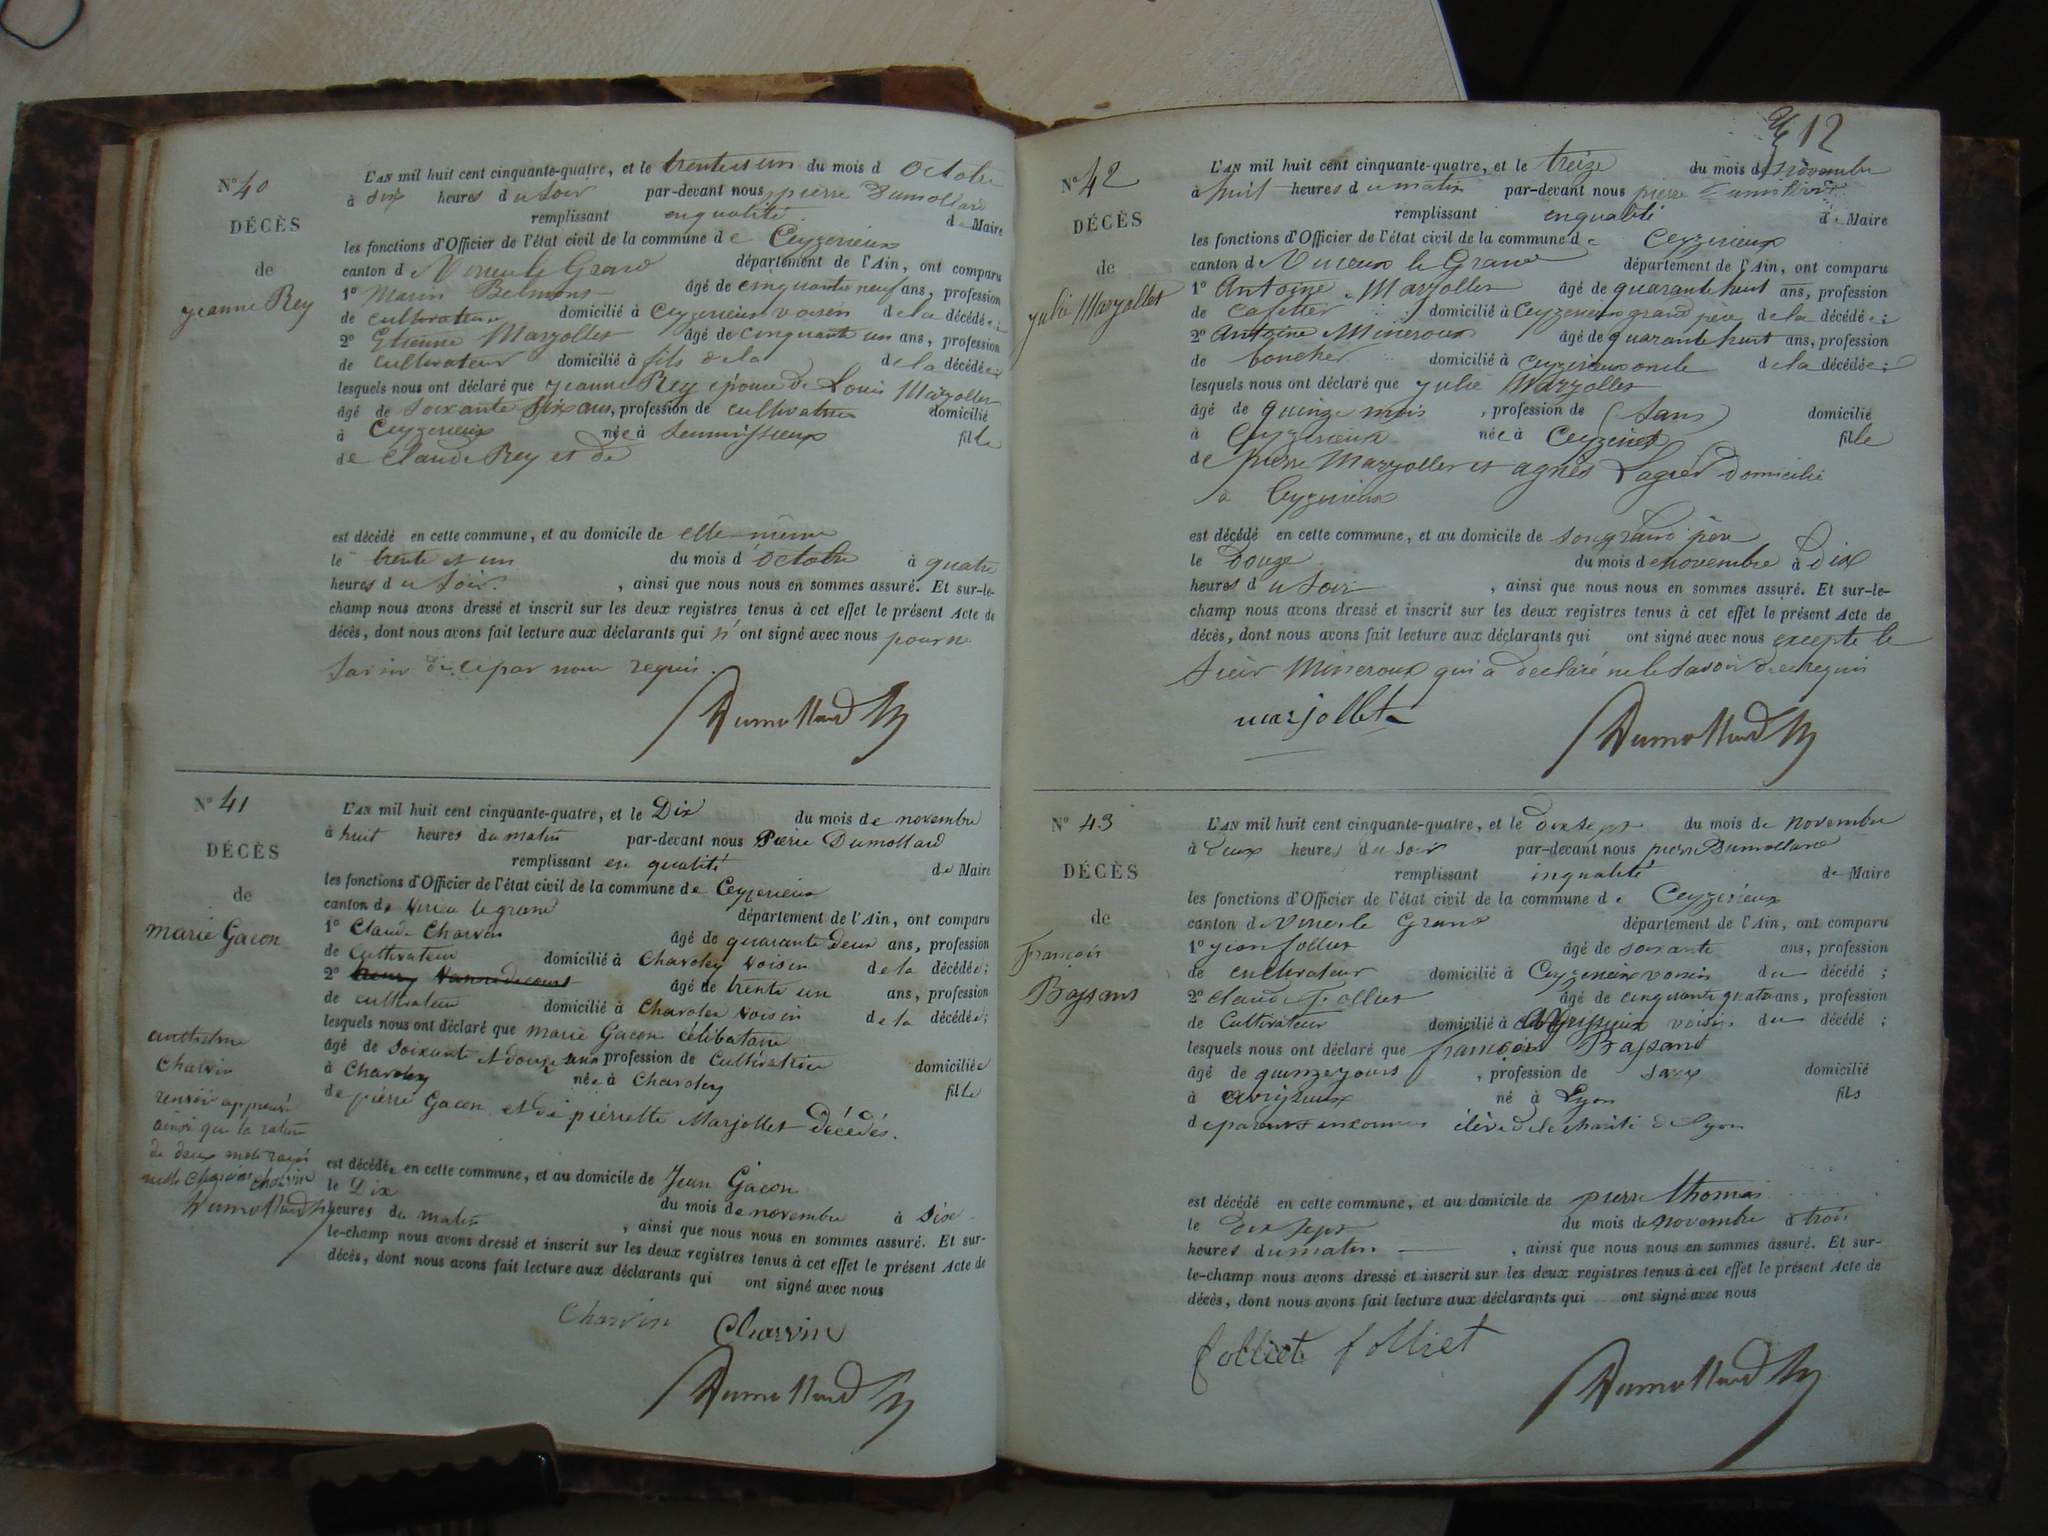 N° 40
DÉCÈS
de
jeanne Rey
L'AN mil huit cent cinquante-quatre, et le trente et un du mois d octobre
à six heures du soir par-devant nous pierre Dumollard
remplissant en qualité de Maire
les fonctions d'Officier de l'état civil de la commune de Ceyzerieux
canton de Virieu le Grand département de l'Ain, ont comparu
1° Marin Belmont âgé de cinquante neuf ans, profession
de cultivateur domicilié à Ceyzerieux voisin de la décédée;
2° Etienne Marjollet âgé de cinquante un ans, profession
de cultivateur domicilié à fils de la de la décédée;
lesquels nous ont déclaré que jeanne Rey épouse de Louis Marjollet
âgé de soixante dix ans, profession de cultivatrice domicilié
à Ceyzerieux née à fille
de Claude Rey et de
est décédé en cette commune, et au domicile de elle même
le trente et un du mois d'octobre à quatre
heures du soir, ainsi que nous nous en sommes assuré. Et sur-le-
champ nous avons dressé et inscrit sur les deux registres tenus à cet effet le présent Acte de
décès, dont nous avons fait lecture aux déclarants qui n'ont signé avec nous pour ne
savoir de ce par nous requis.
Dumollard
N° 41
DÉCÈS
de
marie Gacon
L'AN mil huit cent cinquante-quatre, et le Dix du mois de novembre
à huit heures du matin par-devant nous Pierre Dumollard
remplissant en qualité de Maire
les fonctions d'Officier de l'état civil de la commune de Ceyzerieux
canton de Virieu le grand département de l'Ain, ont comparu
1° Claude Charvin âgé de quarante deux ans, profession
de Cultivateur domicilié à Chavoley voisin de la décédée;
2° âgé de trente un ans, profession
de cultivateur domicilié à Chavoley voisin de la décédée;
lesquels nous ont déclaré que marie Gacon célibataire
âgé de soixante et douze ans profession de Cultivatrice domiciliée
à Chavoley née à Chavoley fille
de pierre Gacon et de pierrette Marjollet Décédés.
est décédée en cette commune, et au domicile de Jean Gacon
le Dix du mois de novembre à six
heures du matin, ainsi que nous nous en sommes assuré. Et sur-
le-champ nous avons dressé et inscrit sur les deux registres tenus à cet effet le présent Acte de
décès, dont nous avons fait lecture aux déclarants qui ont signé avec nous
anthelme
Charvin
renvoi approuvé
ainsi que la rature
de deux mots rayés
nuls Charvin Charvin
Dumollard
Charvin Charvin
Dumollard
12
N° 42
DÉCÈS
de
julie Marjollet
L'AN mil huit cent cinquante-quatre, et le treize du mois de novembre
à huit heures du matin par-devant nous pierre Dumollard
remplissant en qualité de Maire
les fonctions d'Officier de l'état civil de la commune de Ceyzerieux
canton de Virieux le Grand département de l'Ain, ont comparu
1° Antoine Marjollet âgé de quarante huit ans, profession
de cafetier domicilié à Ceyzerieux grand père de la décédée;
2° Antoine Mineroux âgé de quarante huit ans, profession
de boucher domicilié à Ceyzerieux oncle de la décédée;
lesquels nous ont déclaré que julie Marjollet
âgé de quinze mois, profession de (sans) domicilié
à Ceyzerieux née à Ceyzerieux fille
de pierre Marjollet et agnès Lagier Domicilié
à Ceyzerieux
est décédé en cette commune, et au domicile de son grand père
le Douze du mois de novembre à Dix
heures du soir, ainsi que nous nous en sommes assuré. Et sur-le-
champ nous avons dressé et inscrit sur les deux registres tenus à cet effet le présent Acte de
décès, dont nous avons fait lecture aux déclarants qui ont signé avec nous excepté le
sieur Mineroux qui a déclaré ne le savoir de ce requis
marjollet
Dumollard
N° 43
DÉCÈS
de
François
Bajsans
L'AN mil huit cent cinquante-quatre, et le dix sept du mois de novembre
à deux heures du soir par-devant nous pierre Dumollard
remplissant en qualité de Maire
les fonctions d'Officier de l'état civil de la commune de Ceyzerieux
canton de Virieu le Grand département de l'Ain, ont comparu
1° jean folliet âgé de soixante ans, profession
de cultivateur domicilié à Ceyzerieux voisin du décédé;
2° Claude Folliet âgé de cinquante quatre ans, profession
de Cultivateur domicilié à voisin du décédé;
lesquels nous ont déclaré que françois Bajsans
âgé de quinze jours, profession de sans domicilié
à né à Lyon fils
de parents inconnus élève de la charité de Lyon
est décédé en cette commune, et au domicile de pierre thomas
le dix sept du mois de novembre à trois
heures du matin, ainsi que nous nous en sommes assuré. Et sur-
le-champ nous avons dressé et inscrit sur les deux registres tenus à cet effet le présent Acte de
décès, dont nous avons fait lecture aux déclarants qui ont signé avec nous
folliet folliet
Dumollard